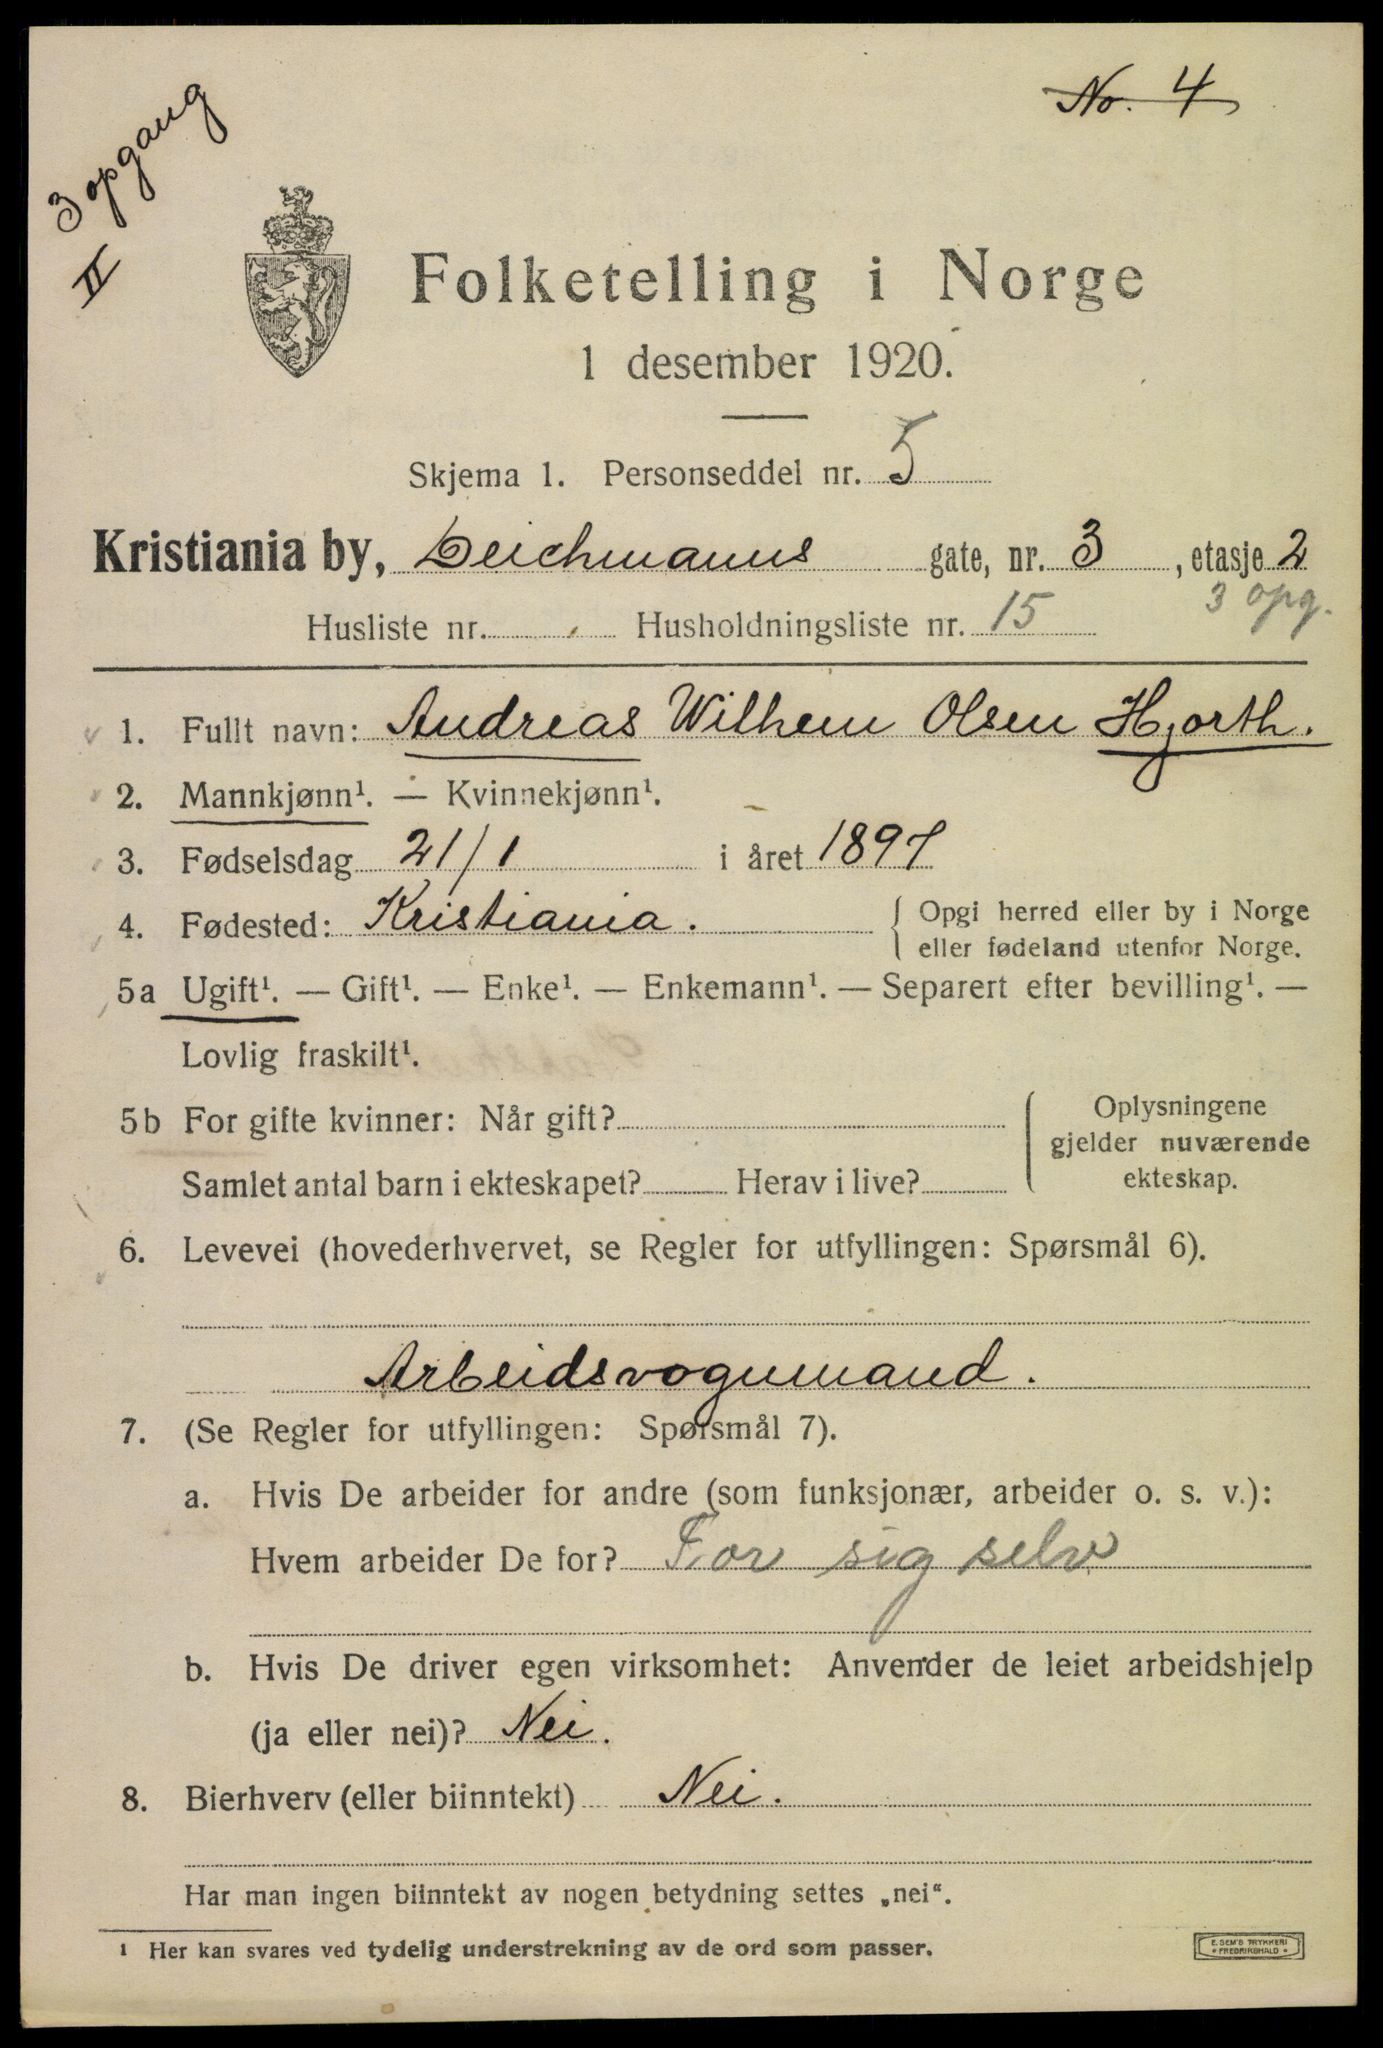 No. 4
3 opgang
II
Folketelling i Norge
1 desember 1920.
Skjema 1. Personseddel nr. 5
Kristiania by, Deichmanns gate, nr. 3, etasje 2
3 opg.
Husliste nr. Husholdningsliste nr. 15
1. Fullt navn: Andreas Wilhem Olsen Hjorth.
2. Mannkjønn¹. — Kvinnekjønn¹.
3. Fødselsdag 21/1 i året 1897
4. Fødested: Kristiania. { Opgi herred eller by i Norge
eller fødeland utenfor Norge.
5a Ugift¹. — Gift¹. — Enke¹. — Enkemann¹. — Separert efter bevilling¹. —
Lovlig fraskilt¹.
5b For gifte kvinner: Når gift? Oplysningene
gjelder nuværende
ekteskap.
Samlet antal barn i ekteskapet? Herav i live?
6. Levevei (hovederhvervet, se Regler for utfyllingen: Spørsmål 6).
Arbeidsvognmand.
7. (Se Regler for utfyllingen: Spørsmål 7).
a. Hvis De arbeider for andre (som funksjonær, arbeider o. s. v.):
Hvem arbeider De for? For sig selv
b. Hvis De driver egen virksomhet: Anvender de leiet arbeidshjelp
(ja eller nei)? Nei.
8. Bierhverv (eller biinntekt) Nei.
Har man ingen biinntekt av nogen betydning settes „nei“.
¹ Her kan svares ved tydelig understrekning av de ord som passer.
E. SEM'S TRYKKERI
FREDRIKSHALD